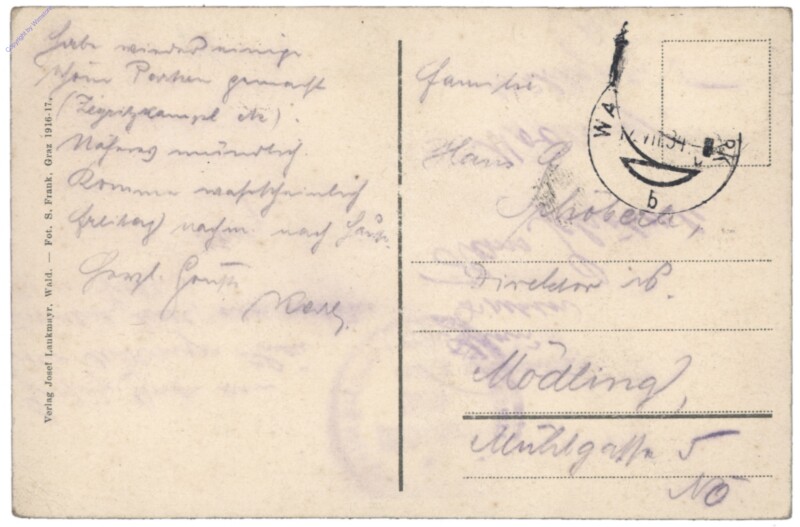 Habe wieder einige
schöne Partien gemacht
(Zeyritzkampel etc).
Näheres mündlich.
Komme wahrscheinlich
Freitag nachm. nach Hause.
Herzl. Grüße
Verlag Josef Lankmayr, Wald. — Fot. S. Frank, Graz 1916-17.
Familie
Hans
Schöberl,
Direktor
Mödling,
Mühlgasse 5
NÖ
WA
VII.34
b
Copyright by